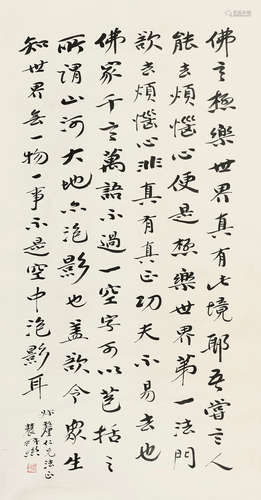 佛言極樂世界真有此境耶吾嘗言人
能去煩惱心便是極樂世界第一法門
欲去煩惱心非真有真正功夫不易去也
佛家千言萬語不過一空字可以苞括之
所謂山河大地亦泡影也蓋欲令眾生
知世界無一物一事不是空中泡影耳
仁兄法正